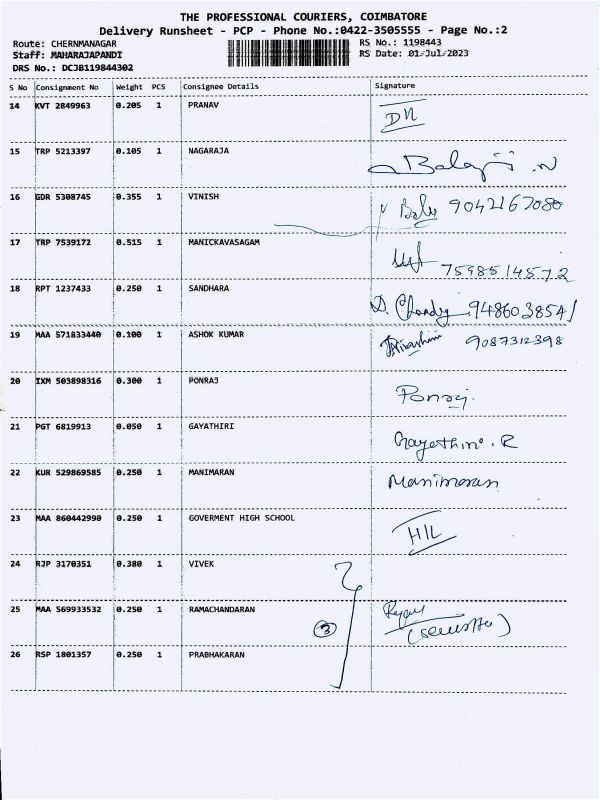 THE PROFESSIONAL COURIERS, COIMBATORE
Delivery Runsheet - PCP - Phone No.:0422-3505555 - Page No.:2
Route: CHERNMANAGAR RS No.: 1198443
Staff: MAHARAJAPANDI RS Date: 01-Jul-2023
DRS No.: DCJB119844302
S No Consignment No Weight PCS Consignee Details Signature
14 KVT 2849963 0.205 1 PRANAV DN
15 TRP 5213397 0.105 1 NAGARAJA Balaji N
16 GDR 5308745 0.355 1 VINISH Balu 9042167080
17 TRP 7539172 0.515 1 MANICKAVASAGAM 7598514572
18 RPT 1237433 0.250 1 SANDHARA D. Chandy 9486038541
19 MAA 571833440 0.100 1 ASHOK KUMAR 9087312398
20 IXM 503898316 0.300 1 PONRAJ Ponraj.
21 PGT 6819913 0.050 1 GAYATHIRI Gayathiri . R
22 KUR 529869585 0.250 1 MANIMARAN Manimaran
23 MAA 860442990 0.250 1 GOVERMENT HIGH SCHOOL
24 RJP 3170351 0.380 1 VIVEK
25 MAA 569933532 0.250 1 RAMACHANDARAN 3
26 RSP 1801357 0.250 1 PRABHAKARAN